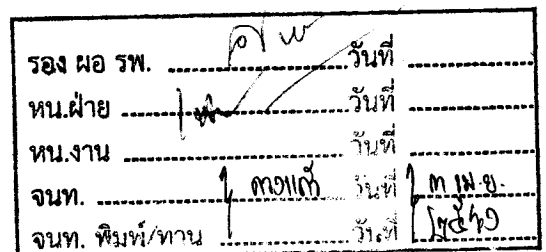 รอง ผอ รพ. ........................ วันที่ ....................
หน.ฝ่าย ........................ วันที่ ....................
หน.งาน ........................ วันที่ ....................
จนท. ........................ วันที่ ๓ เม.ย.
จนท. พิมพ์/ทาน ........................ วันที่ ....................